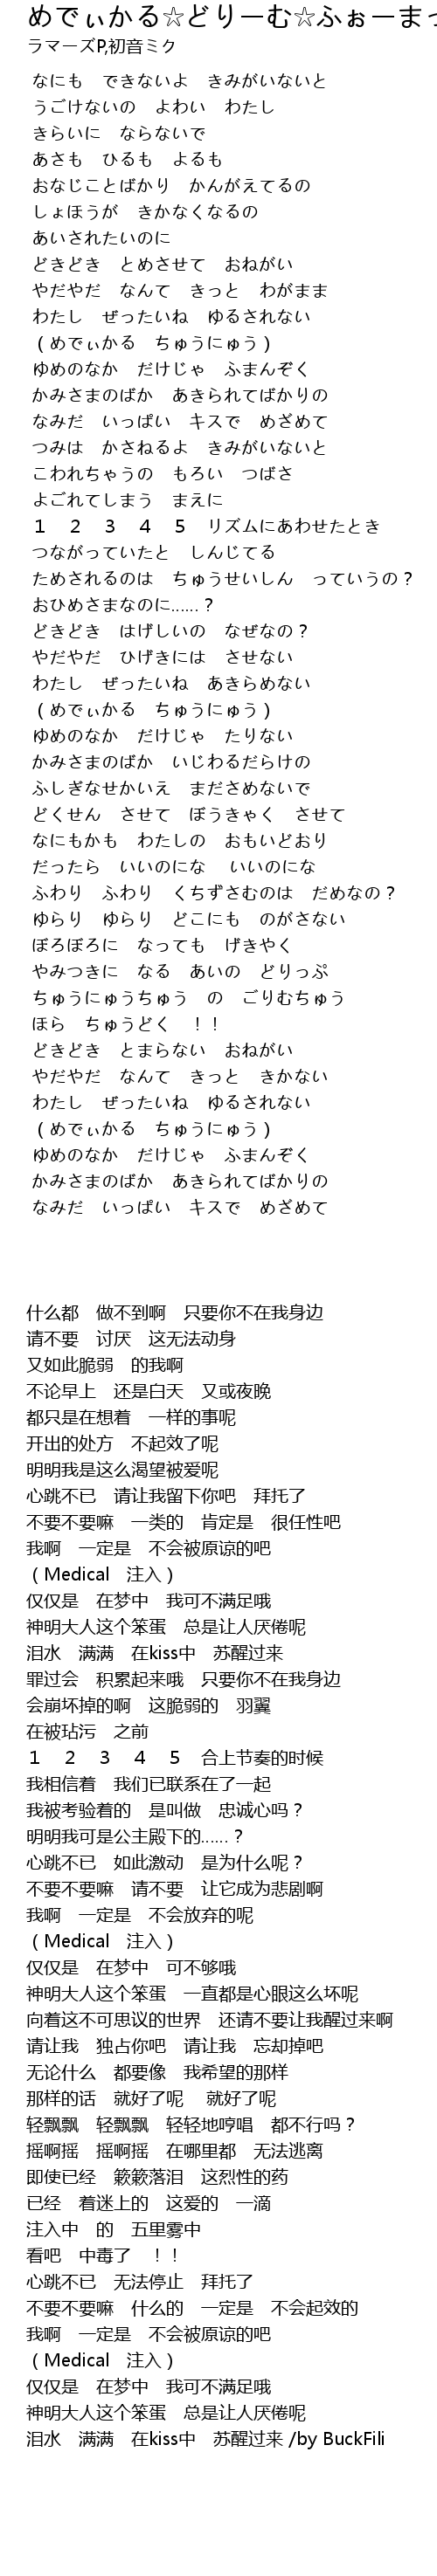 めでぃかる☆どりーむ☆ふぉーまっ
ラマーズP,初音ミク
なにも　できないよ　きみがいないと
うごけないの　よわい　わたし
きらいに　ならないで
あさも　ひるも　よるも
おなじことばかり　かんがえてるの
しょほうが　きかなくなるの
あいされたいのに
どきどき　とめさせて　おねがい
やだやだ　なんて　きっと　わがまま
わたし　ぜったいね　ゆるされない
（めでぃかる　ちゅうにゅう）
ゆめのなか　だけじゃ　ふまんぞく
かみさまのばか　あきられてばかりの
なみだ　いっぱい　キスで　めざめて
つみは　かさねるよ　きみがいないと
こわれちゃうの　もろい　つばさ
よごれてしまう　まえに
１　２　３　４　５　リズムにあわせたとき
つながっていたと　しんじてる
ためされるのは　ちゅうせいしん　っていうの？
おひめさまなのに……？
どきどき　はげしいの　なぜなの？
やだやだ　ひげきには　させない
わたし　ぜったいね　あきらめない
（めでぃかる　ちゅうにゅう）
ゆめのなか　だけじゃ　たりない
かみさまのばか　いじわるだらけの
ふしぎなせかいえ　まださめないで
どくせん　させて　ぼうきゃく　させて
なにもかも　わたしの　おもいどおり
だったら　いいのにな　 いいのにな
ふわり　ふわり　くちずさむのは　だめなの？
ゆらり　ゆらり　どこにも　のがさない
ぼろぼろに　なっても　げきやく
やみつきに　なる　あいの　どりっぷ
ちゅうにゅうちゅう　の　ごりむちゅう
ほら　ちゅうどく　！！
どきどき　とまらない　おねがい
やだやだ　なんて　きっと　きかない
わたし　ぜったいね　ゆるされない
（めでぃかる　ちゅうにゅう）
ゆめのなか　だけじゃ　ふまんぞく
かみさまのばか　あきられてばかりの
なみだ　いっぱい　キスで　めざめて
什么都　做不到啊　只要你不在我身边
请不要　讨厌　这无法动身
又如此脆弱　的我啊
不论早上　还是白天　又或夜晚
都只是在想着　一样的事呢
开出的处方　不起效了呢
明明我是这么渴望被爱呢
心跳不已　请让我留下你吧　拜托了
不要不要嘛　一类的　肯定是　很任性吧
我啊　一定是　不会被原谅的吧
（Medical　注入）
仅仅是　在梦中　我可不满足哦
神明大人这个笨蛋　总是让人厌倦呢
泪水　满满　在kiss中　苏醒过来
罪过会　积累起来哦　只要你不在我身边
会崩坏掉的啊　这脆弱的　羽翼
在被玷污　之前
１　２　３　４　５　合上节奏的时候
我相信着　我们已联系在了一起
我被考验着的　是叫做　忠诚心吗？
明明我可是公主殿下的……？
心跳不已　如此激动　是为什么呢？
不要不要嘛　请不要　让它成为悲剧啊
我啊　一定是　不会放弃的呢
（Medical　注入）
仅仅是　在梦中　可不够哦
神明大人这个笨蛋　一直都是心眼这么坏呢
向着这不可思议的世界　还请不要让我醒过来啊
请让我　独占你吧　请让我　忘却掉吧
无论什么　都要像　我希望的那样
那样的话　就好了呢　 就好了呢
轻飘飘　轻飘飘　轻轻地哼唱　都不行吗？
摇啊摇　摇啊摇　在哪里都　无法逃离
即使已经　簌簌落泪　这烈性的药
已经　着迷上的　这爱的　一滴
注入中　的　五里雾中
看吧　中毒了　！！
心跳不已　无法停止　拜托了
不要不要嘛　什么的　一定是　不会起效的
我啊　一定是　不会被原谅的吧
（Medical　注入）
仅仅是　在梦中　我可不满足哦
神明大人这个笨蛋　总是让人厌倦呢
泪水　满满　在kiss中　苏醒过来 /by BuckFili